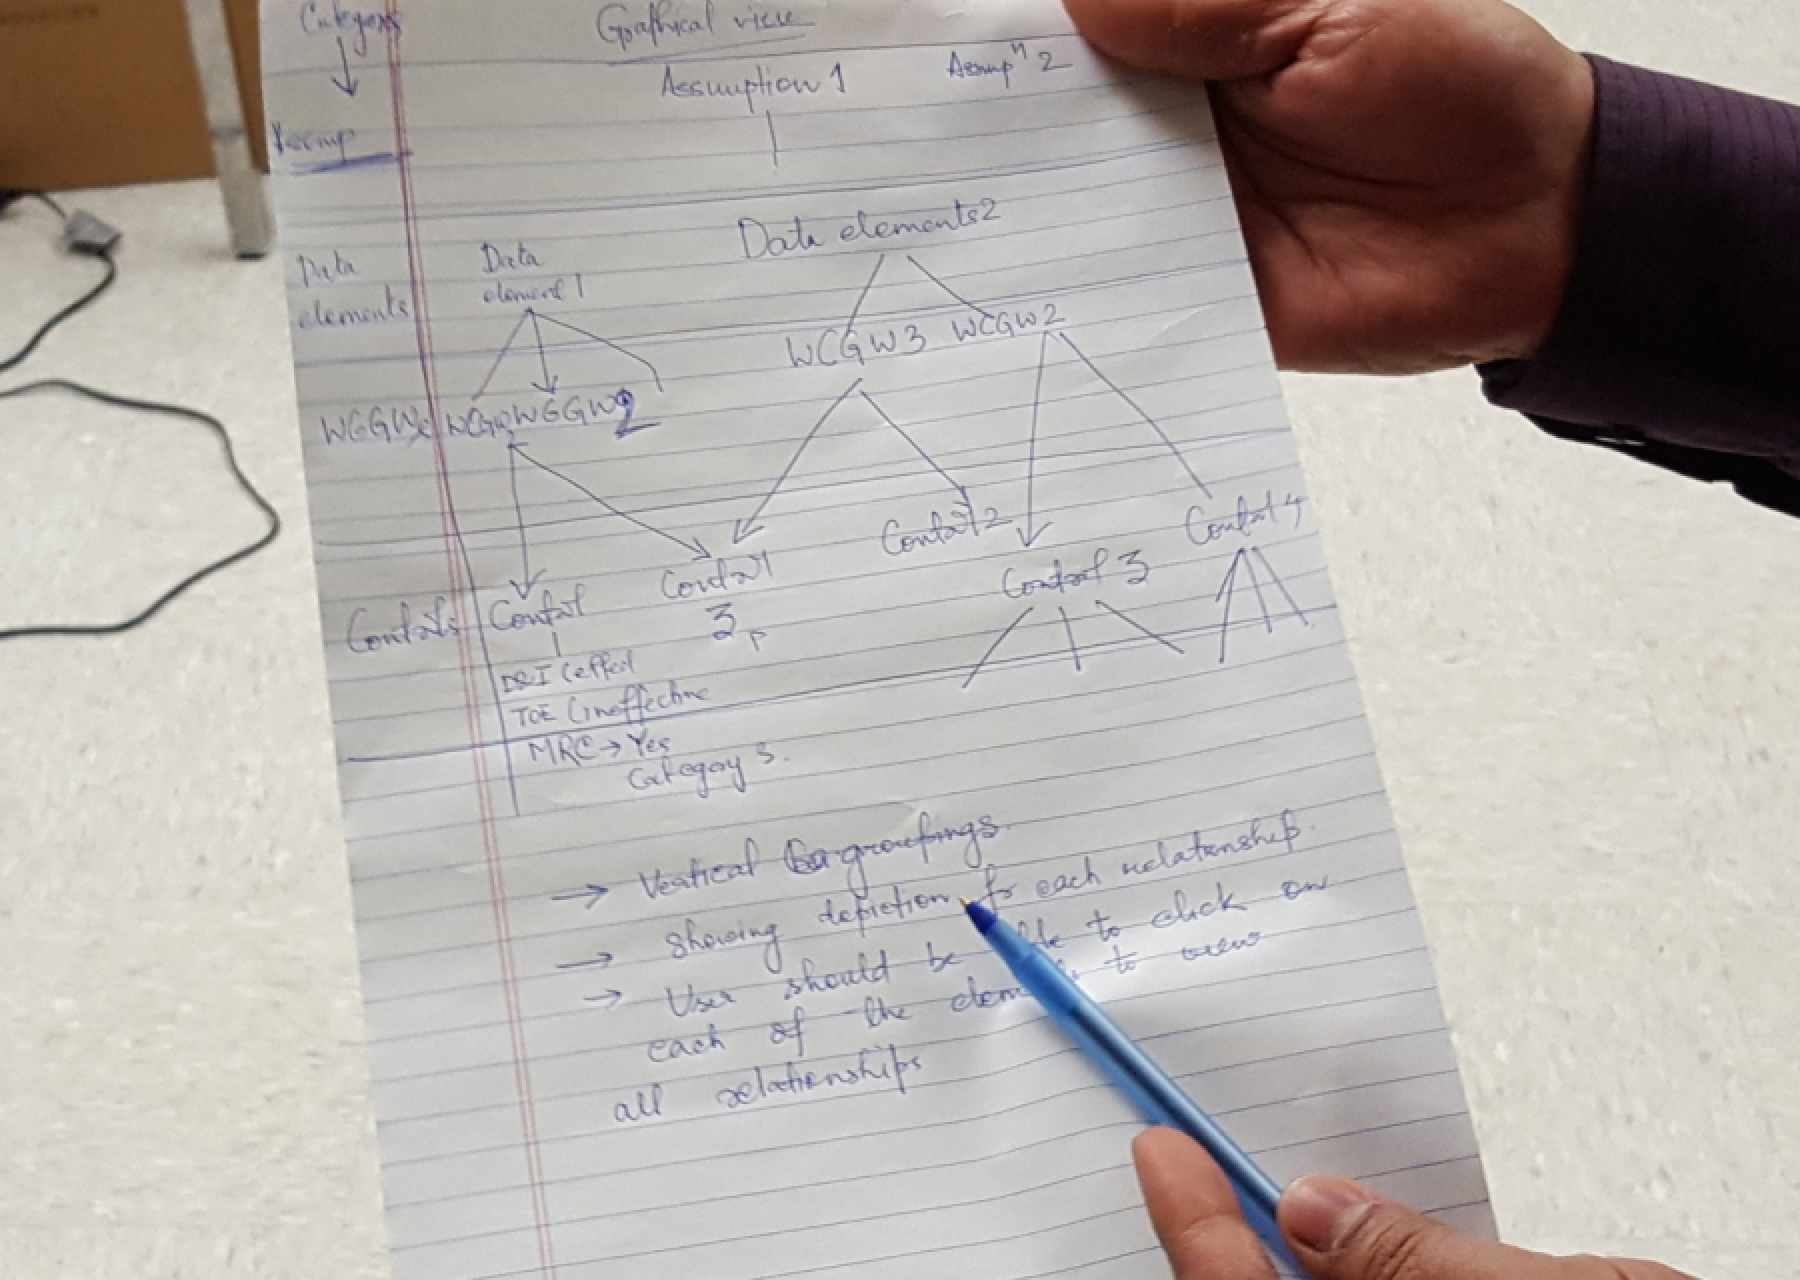 Category Graphical view
Assumption 1 Assump n 2
Assump
Data elements2
Data Data
elements element 1
WCGW3 WCGW2
WCGWs WCGW WCGW2
Control 2 Control 4
Controls Control Control Control 3
1 3
D&I (effect
TOE (ineffective
MRC → Yes
Category 3.
→ Vertical groupings
→ showing depiction for each relationship.
→ User should be to click on
each of the to view
all relationships